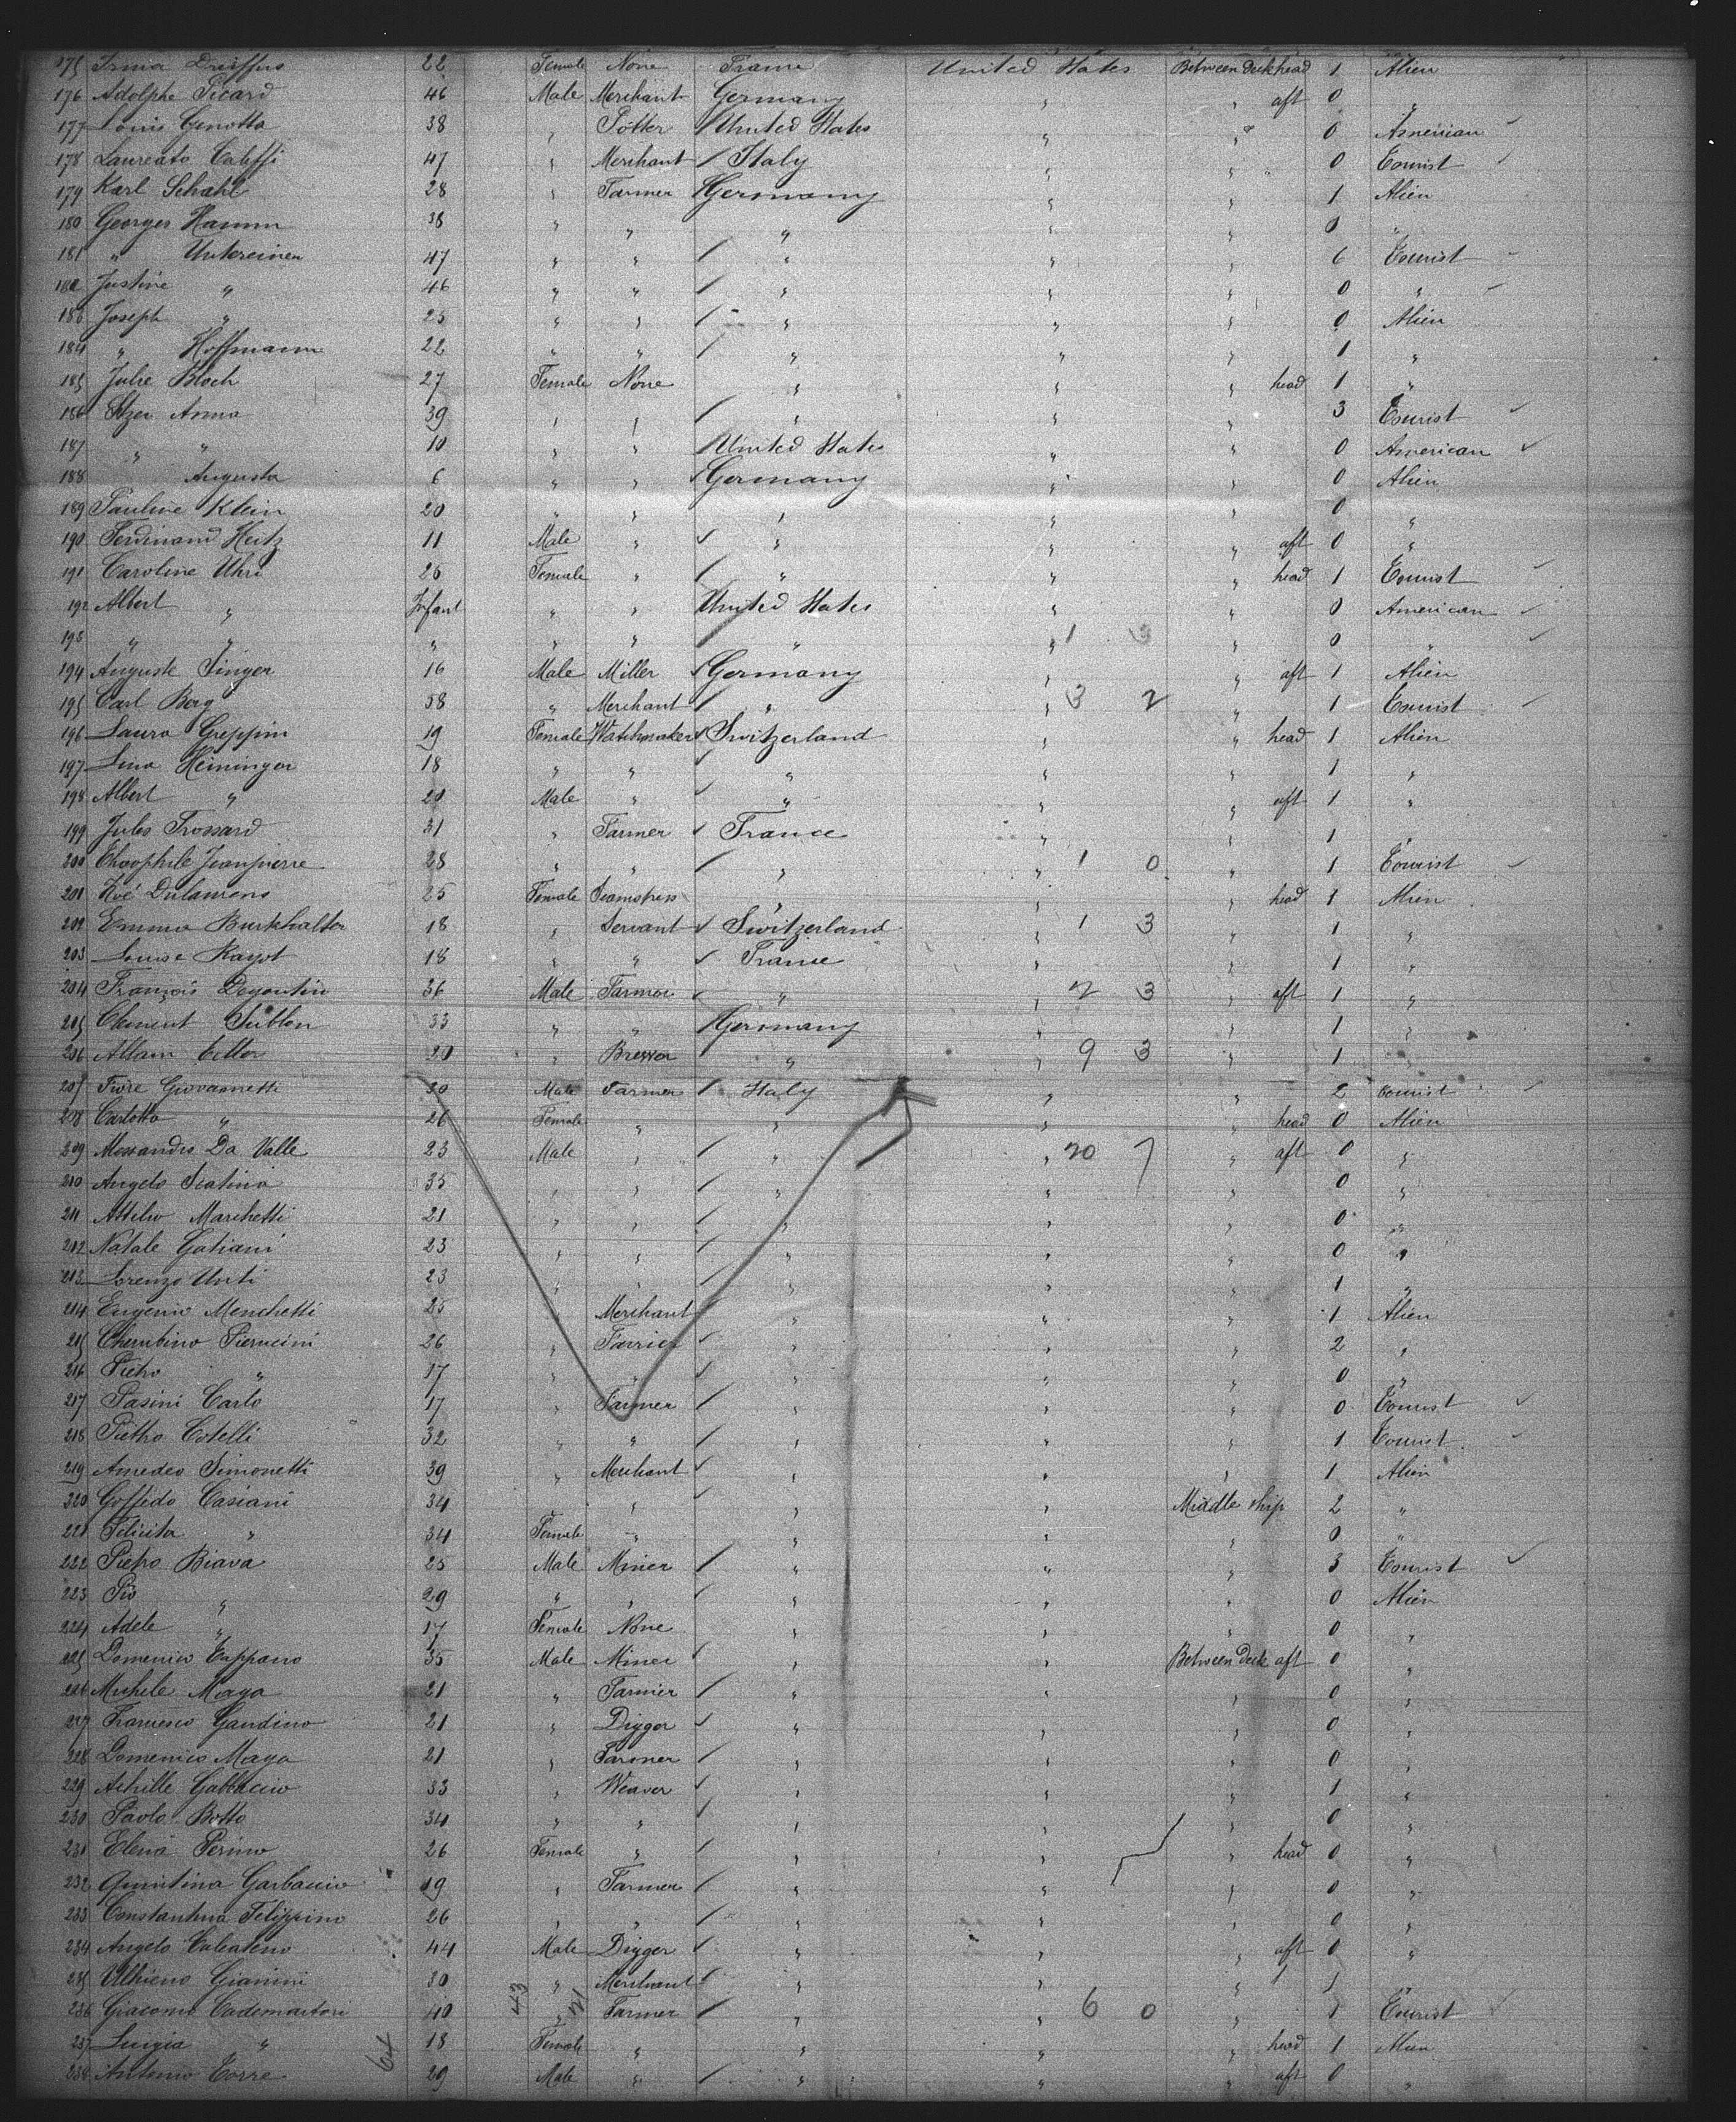 175 Irma Dreiffus 22 Female None France United States Between deck head 1 Alien
176 Adolphe Picard 46 Male Merchant Germany " " aft 0 "
177 Louis Genotta 38 " Potter United States " " 0 American
178 Laureato Califfi 47 " Merchant Italy " " 0 Tourist
179 Karl Schahl 28 " Farmer Germany " " 1 Alien
180 Georges Hamm 38 " " " " " 0 "
181 " Untereiner 47 " " " " " 6 Tourist
182 Justine " 46 " " " " " 0 "
183 Joseph " 23 " " " " " 0 Alien
184 " Hoffmann 22 " " " " " 1 "
185 Julie Bloch 27 Female None " " " head 1 "
186 Etzer Anna 39 " " " " " 3 Tourist
187 " " 10 " " United States " " 0 American
188 Augusta 6 " " Germany " " 0 Alien
189 Pauline Klein 20 " " " " " 0 "
190 Ferdinand Heitz 11 Male " " " " aft 0 "
191 Caroline Uhri 26 Female " " " " head 1 Tourist
192 Albert " Infant " " United States " " 0 American
193 " " " " " " " 1 3 " 0 "
194 Auguste Singer 16 Male Miller Germany " " aft 1 Alien
195 Carl Berg 58 " Merchant " " 3 2 " 1 Tourist
196 Laura Greppin 19 Female Watchmaker Switzerland " " head 1 Alien
197 Lina Heininger 18 " " " " " 1 "
198 Albert " 20 Male " " " " aft 1 "
199 Jules Frossard 31 " Farmer France " " 1 "
200 Theophile Jeanpierre 28 " " " " 1 0 " 1 Tourist
201 Zoé Dulamens 25 Female Seamstress " " " head 1 Alien
202 Emma Burkhalter 18 " Servant Switzerland " 1 3 " 1 "
203 Louise Rayot 18 " " France " " 1 "
204 François Degoutin 36 Male Farmer " " 2 3 " aft 1 "
205 Clement Sublon 33 " " Germany " " 1 "
206 20 " Brewer " " 9 3 " 1 "
207 Fiore Giovannetti 30 Male Farmer Italy " " 2 Tourist
208 Carlotta " 26 Female " " " " head 0 Alien
209 Alessandro Da Valle 23 Male " " " 20 7 " aft 0 "
210 Angelo Scatina 35 " " " " " 0 "
211 Attilio Marchetti 21 " " " " " 0 "
212 Natale Gatiani 23 " " " " " 0 "
213 Lorenzo Uniti 23 " " " " " 1 "
214 Eugenio Menchetti 25 " Merchant " " " 1 Alien
215 Cherubino Pierucini 26 " Farrier " " " 2 "
216 Pietro " 17 " " " " " 0 "
217 Pasini Carlo 17 " Farmer " " " 0 Tourist
218 Pietro Cotelli 32 " " " " " 1 Tourist
219 Amedeo Simonetti 39 " Merchant " " " 1 Alien
220 Goffredo Casiani 34 " " " " Middle ship 2 "
221 Felicita " 34 Female " " " " 0 "
222 Pietro Biava 25 Male Miner " " " 3 Tourist
223 Pio " 29 " " " " " 0 Alien
224 Adele " 17 Female None " " " 0 "
225 Domenico Euppano 35 Male Miner " " Between deck aft 0 "
226 Michele Maya 21 " Farmer " " " 0 "
227 Francesco Gandino 21 " Digger " " " 0 "
228 Domenico Maya 21 " Farmer " " " 0 "
229 Achille Gabbaccio 33 " Weaver " " " 1 "
230 Paolo Botto 34 " " " " " 0 "
231 Elena Perino 26 Female " " " " head 0 "
232 Quintina Garbaccio 19 " Farmer " " " 0 "
233 Constantina Filippino 26 " " " " " 0 "
234 Angelo 44 Male Digger " " " aft 0 "
235 Gianini 30 " Merchant " " " 1 "
236 Giacomo Cademartori 40 " Farmer " " 6 0 1 Tourist
237 Luigia " 18 Female " " " " head 1 Alien
238 Antonio Torre 29 Male " " " " aft 0 "
43
21
64